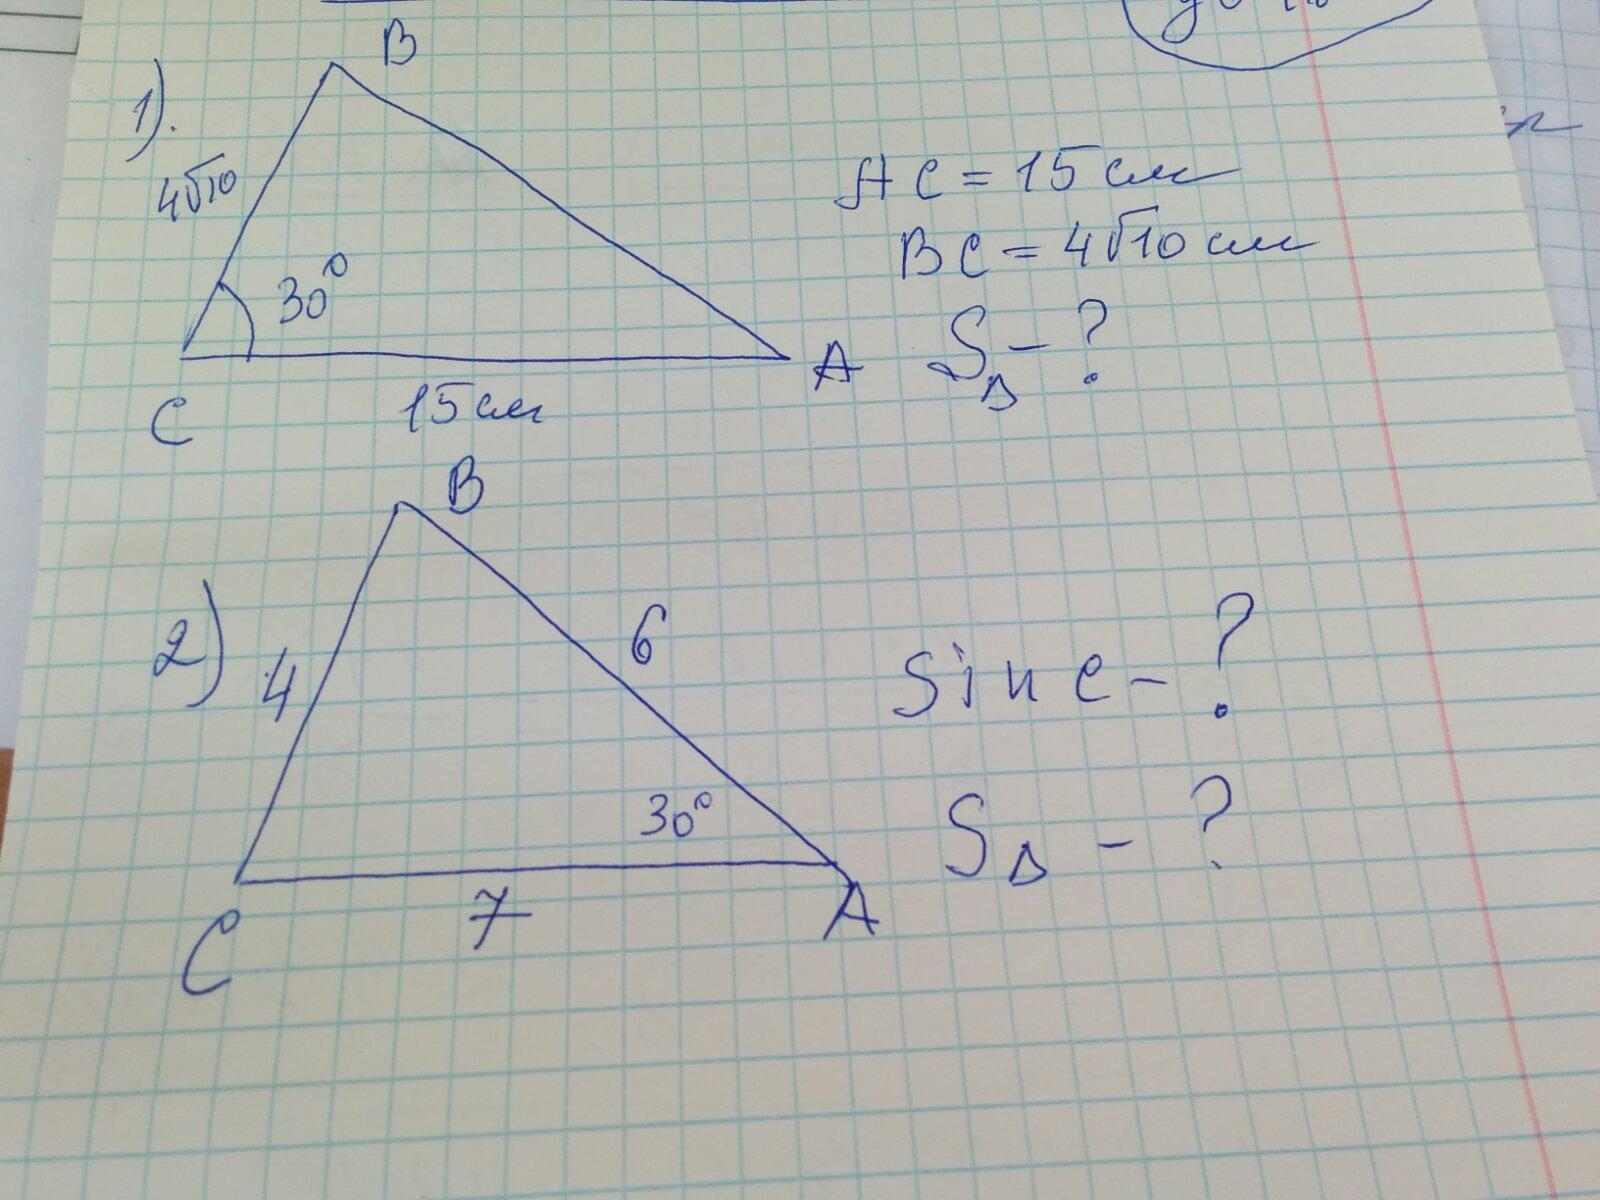 1).
B
4√10
30°
C
15 см
A
AC = 15 см
BC = 4√10 см
S∆ - ?
2)
B
4
6
30°
C
7
A
Sin C - ?
S∆ - ?